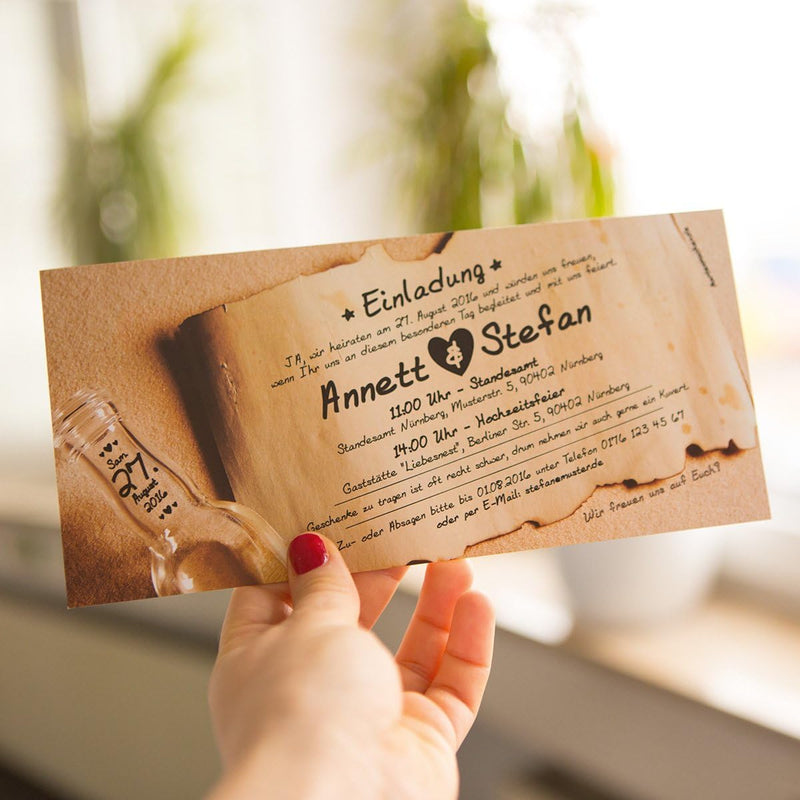 Einladung
JA, wir heiraten am 27. August 2016 und würden uns freuen,
wenn Ihr uns an diesem besonderen Tag begleitet und mit uns feiert.
Annett & Stefan
11:00 Uhr - Standesamt
Standesamt Nürnberg, Musterstr. 5, 90402 Nürnberg
14:00 Uhr - Hochzeitsfeier
Gaststätte "Liebesnest", Berliner Str. 5, 90402 Nürnberg
Geschenke zu tragen ist oft recht schwer, drum nehmen wir auch gerne ein Kuvert
Zu- oder Absagen bitte bis 01.08.2016 unter Telefon 0176 123 45 67
oder per E-Mail: stefan@muster.de
Wir freuen uns auf Euch!
Sam.
27.
August
2016